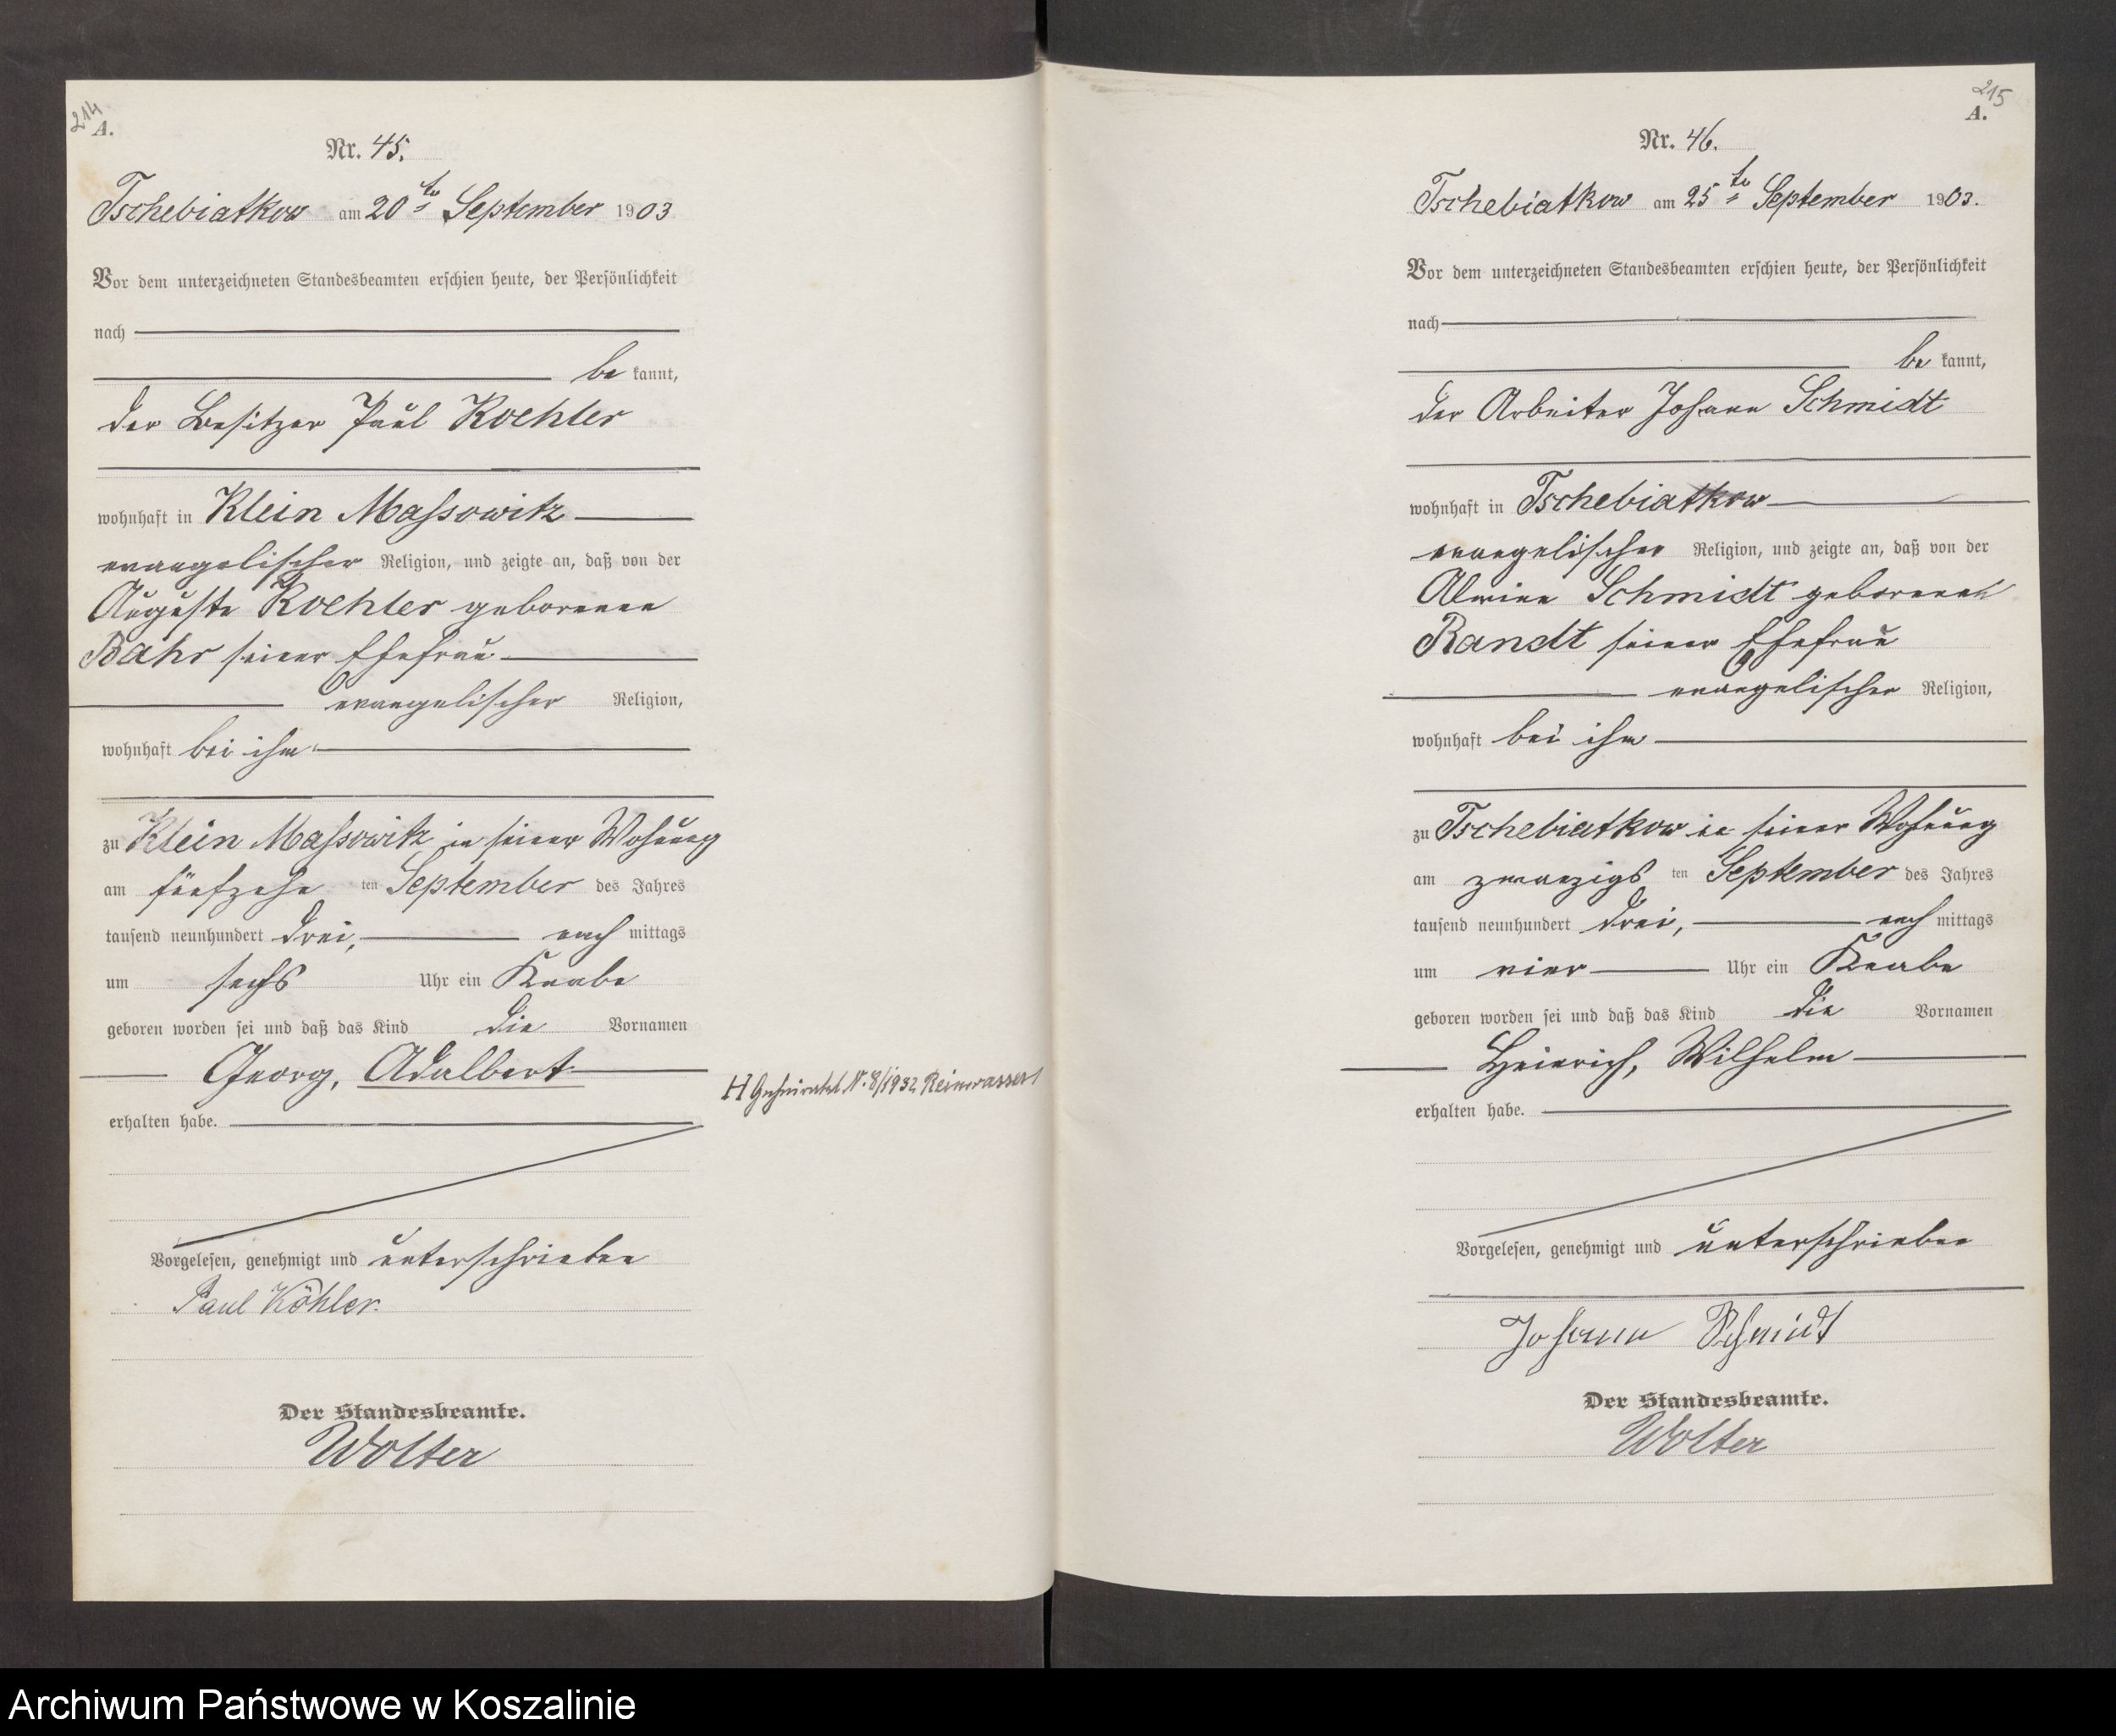 214
A.
Nr. 45.
Tschebiatkow am 20ten September 1903
Vor dem unterzeichneten Standesbeamten erschien heute, der Persönlichkeit
nach
be kannt,
der Besitzer Paul Koehler
wohnhaft in Klein Massowitz
evangelischer Religion, und zeigte an, daß von der
Auguste Koehler geborenen
Bahr seiner Ehefrau
evangelischer Religion,
wohnhaft bei ihm
zu Klein Massowitz in seiner Wohnung
am fünfzehn ten September des Jahres
tausend neunhundert drei, nach mittags
um sechs Uhr ein Knabe
geboren worden sei und daß das Kind die Vornamen
Georg, Adalbert
H Geheiratet N. 8/1932 Reinwasser
erhalten habe.
Vorgelesen, genehmigt und unterschrieben
Paul Köhler.
Der Standesbeamte.
Wolter
215
A.
Nr. 46.
Tschebiatkow am 25ten September 1903.
Vor dem unterzeichneten Standesbeamten erschien heute, der Persönlichkeit
nach
be kannt,
der Arbeiter Johann Schmidt
wohnhaft in Tschebiatkow
evangelischer Religion, und zeigte an, daß von der
Alwine Schmidt geborenen
Randt seiner Ehefrau
evangelischer Religion,
wohnhaft bei ihm
zu Tschebiatkow in seiner Wohnung
am zwanzigs ten September des Jahres
tausend neunhundert drei, nach mittags
um vier Uhr ein Knabe
geboren worden sei und daß das Kind die Vornamen
Heinrich, Wilhelm
erhalten habe.
Vorgelesen, genehmigt und unterschrieben
Johann Schmidt
Der Standesbeamte.
Wolter
Archiwum Państwowe w Koszalinie